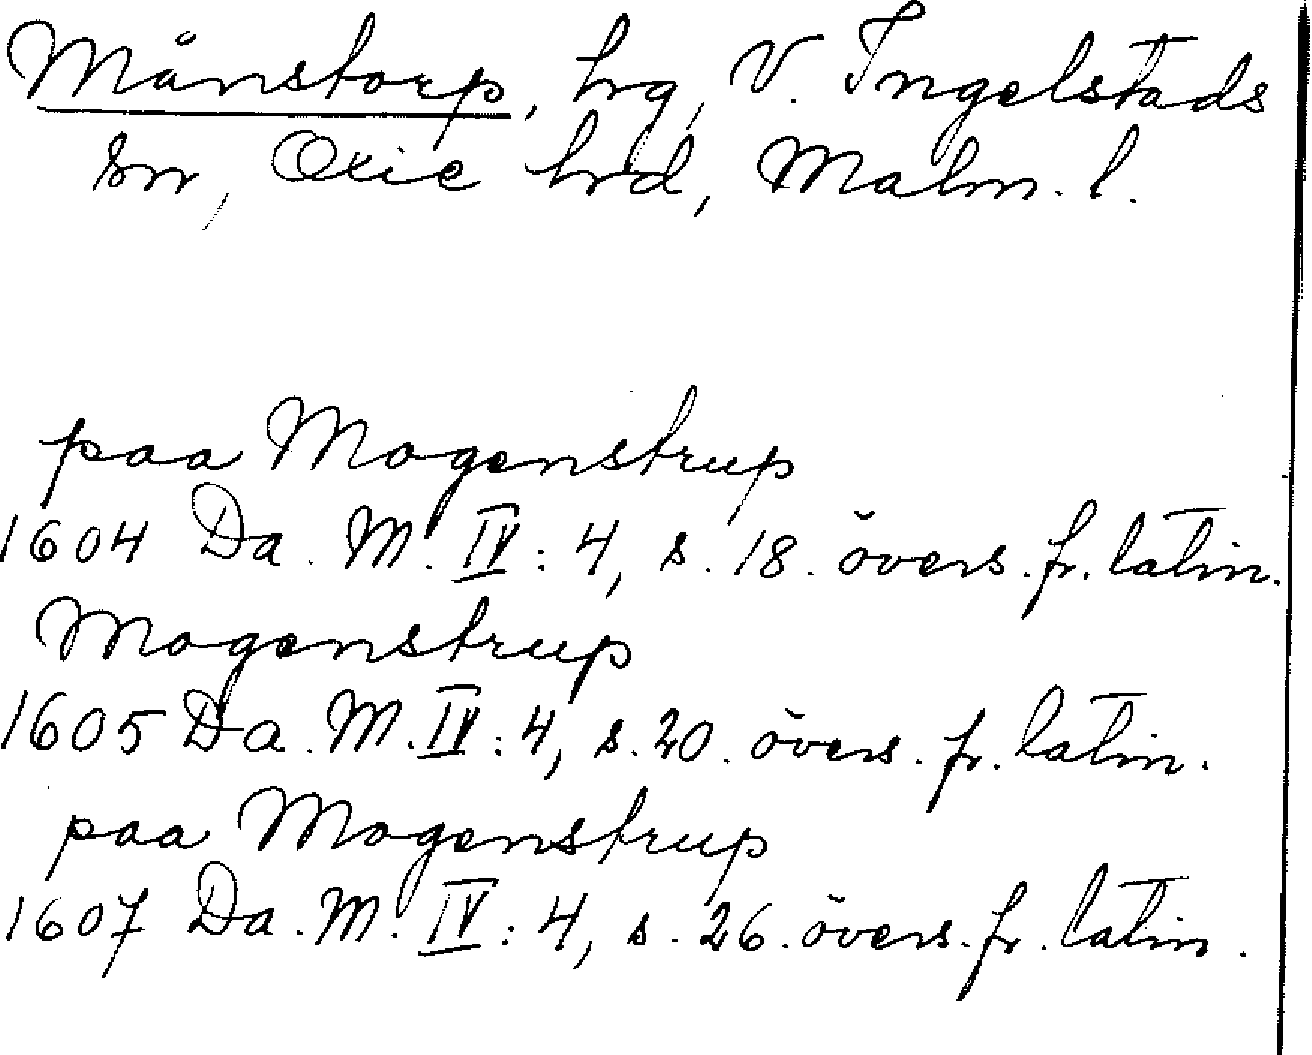 Månstorp, hrg, V. Ingelstads
sn, Oxie hrd, Malm. l.
paa Mogenstrup
1604 Da. M. IV: 4, s. 18. övers. fr. latin.
Mogenstrup
1605 Da. M. IV: 4, s. 20. övers. fr. latin.
paa Mogenstrup
1607 Da. M. IV: 4, s. 26. övers. fr. latin.